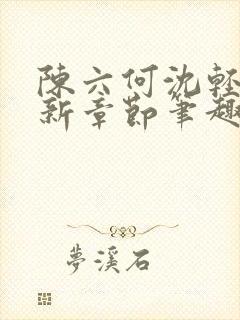 陳六何沈輕
新章節筆趣
夢溪石